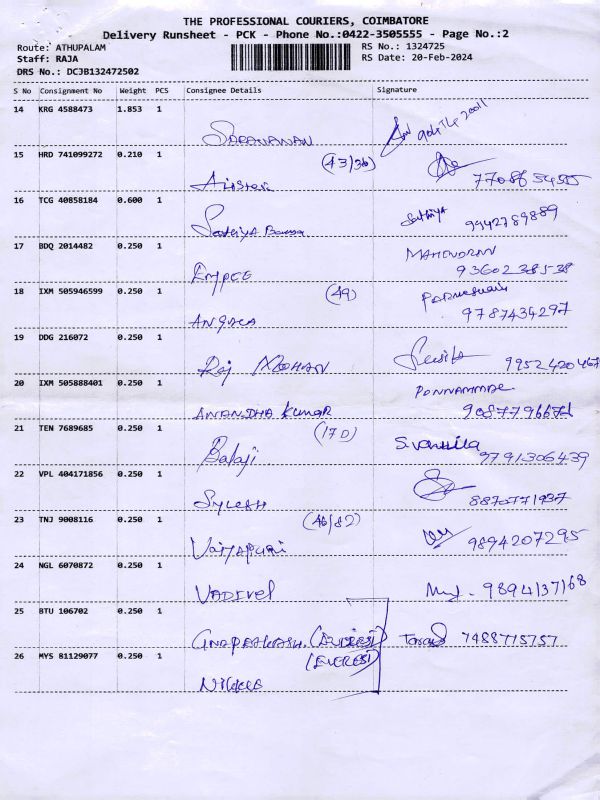 THE PROFESSIONAL COURIERS, COIMBATORE
Delivery Runsheet - PCK - Phone No.:0422-3505555 - Page No.:2
Route: ATHUPALAM
Staff: RAJA
DRS No.: DCJB132472502
RS No.: 1324725
RS Date: 20-Feb-2024
S No Consignment No Weight PCS Consignee Details Signature
14 KRG 4588473 1.853 1
SARANAWAN
15 HRD 741099272 0.210 1 (43/36)
77086 34555
16 TCG 40858184 0.600 1
Sathiya Sathiya 9942789889
17 BDQ 2014482 0.250 1 MAHENDRAN
EMPEE 9360238538
18 IXM 505946599 0.250 1 (49)
ANGALA 9787434297
19 DDG 216072 0.250 1
Raj MOHAN 9952420467
20 IXM 505888401 0.250 1 PONNAMMAL
ANANDHA Kumar
21 TEN 7689685 0.250 1 (17D)
Balaji 9791306439
22 VPL 404171856 0.250 1
SYLESH 8870771937
23 TNJ 9008116 0.250 1 (46/82)
Vaiyapuri 9894207295
24 NGL 6070872 0.250 1
VADIVEL 9894137168
25 BTU 106702 0.250 1
(EVEREST) 7488715757
26 MYS 81129077 0.250 1 (EVEREST)